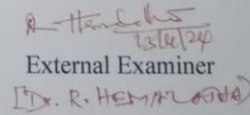 23/4/24
External Examiner
[Dr. R. HEMALATHA]